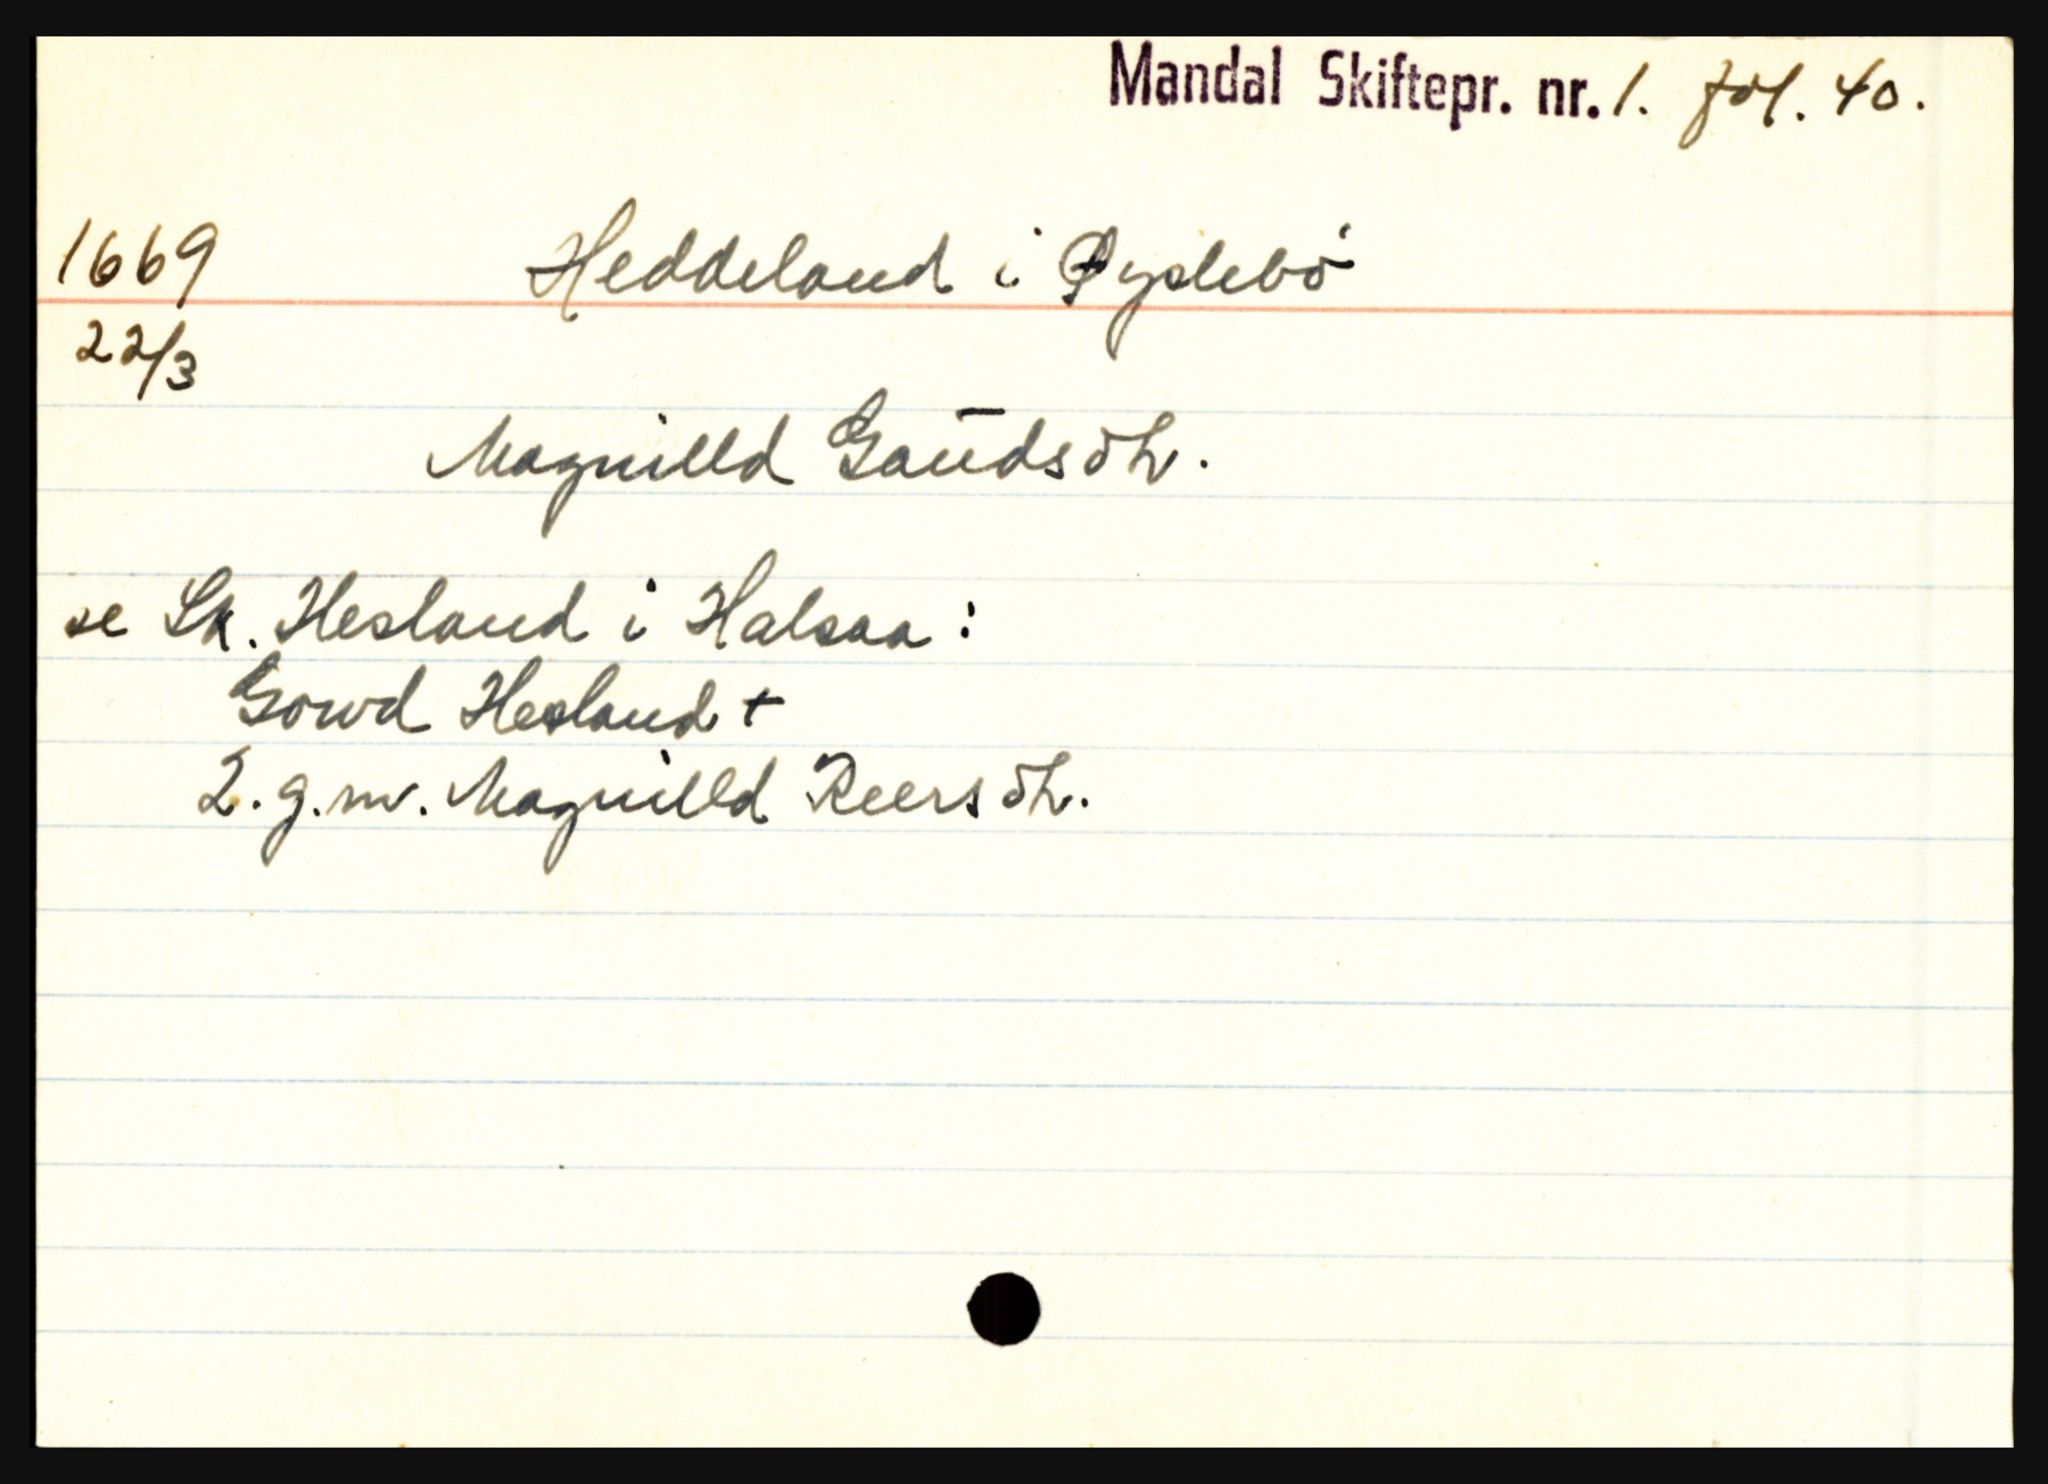 Mandal Skiftepr. nr. 1. fol. 40.
1669 Heddeland i Øyslebö
22/3
Magnilld Gaudsdtr.
se Sk. Hesland i Halsaa:
Gowd Hesland +
2. g.m. Magnilld Reersdtr.